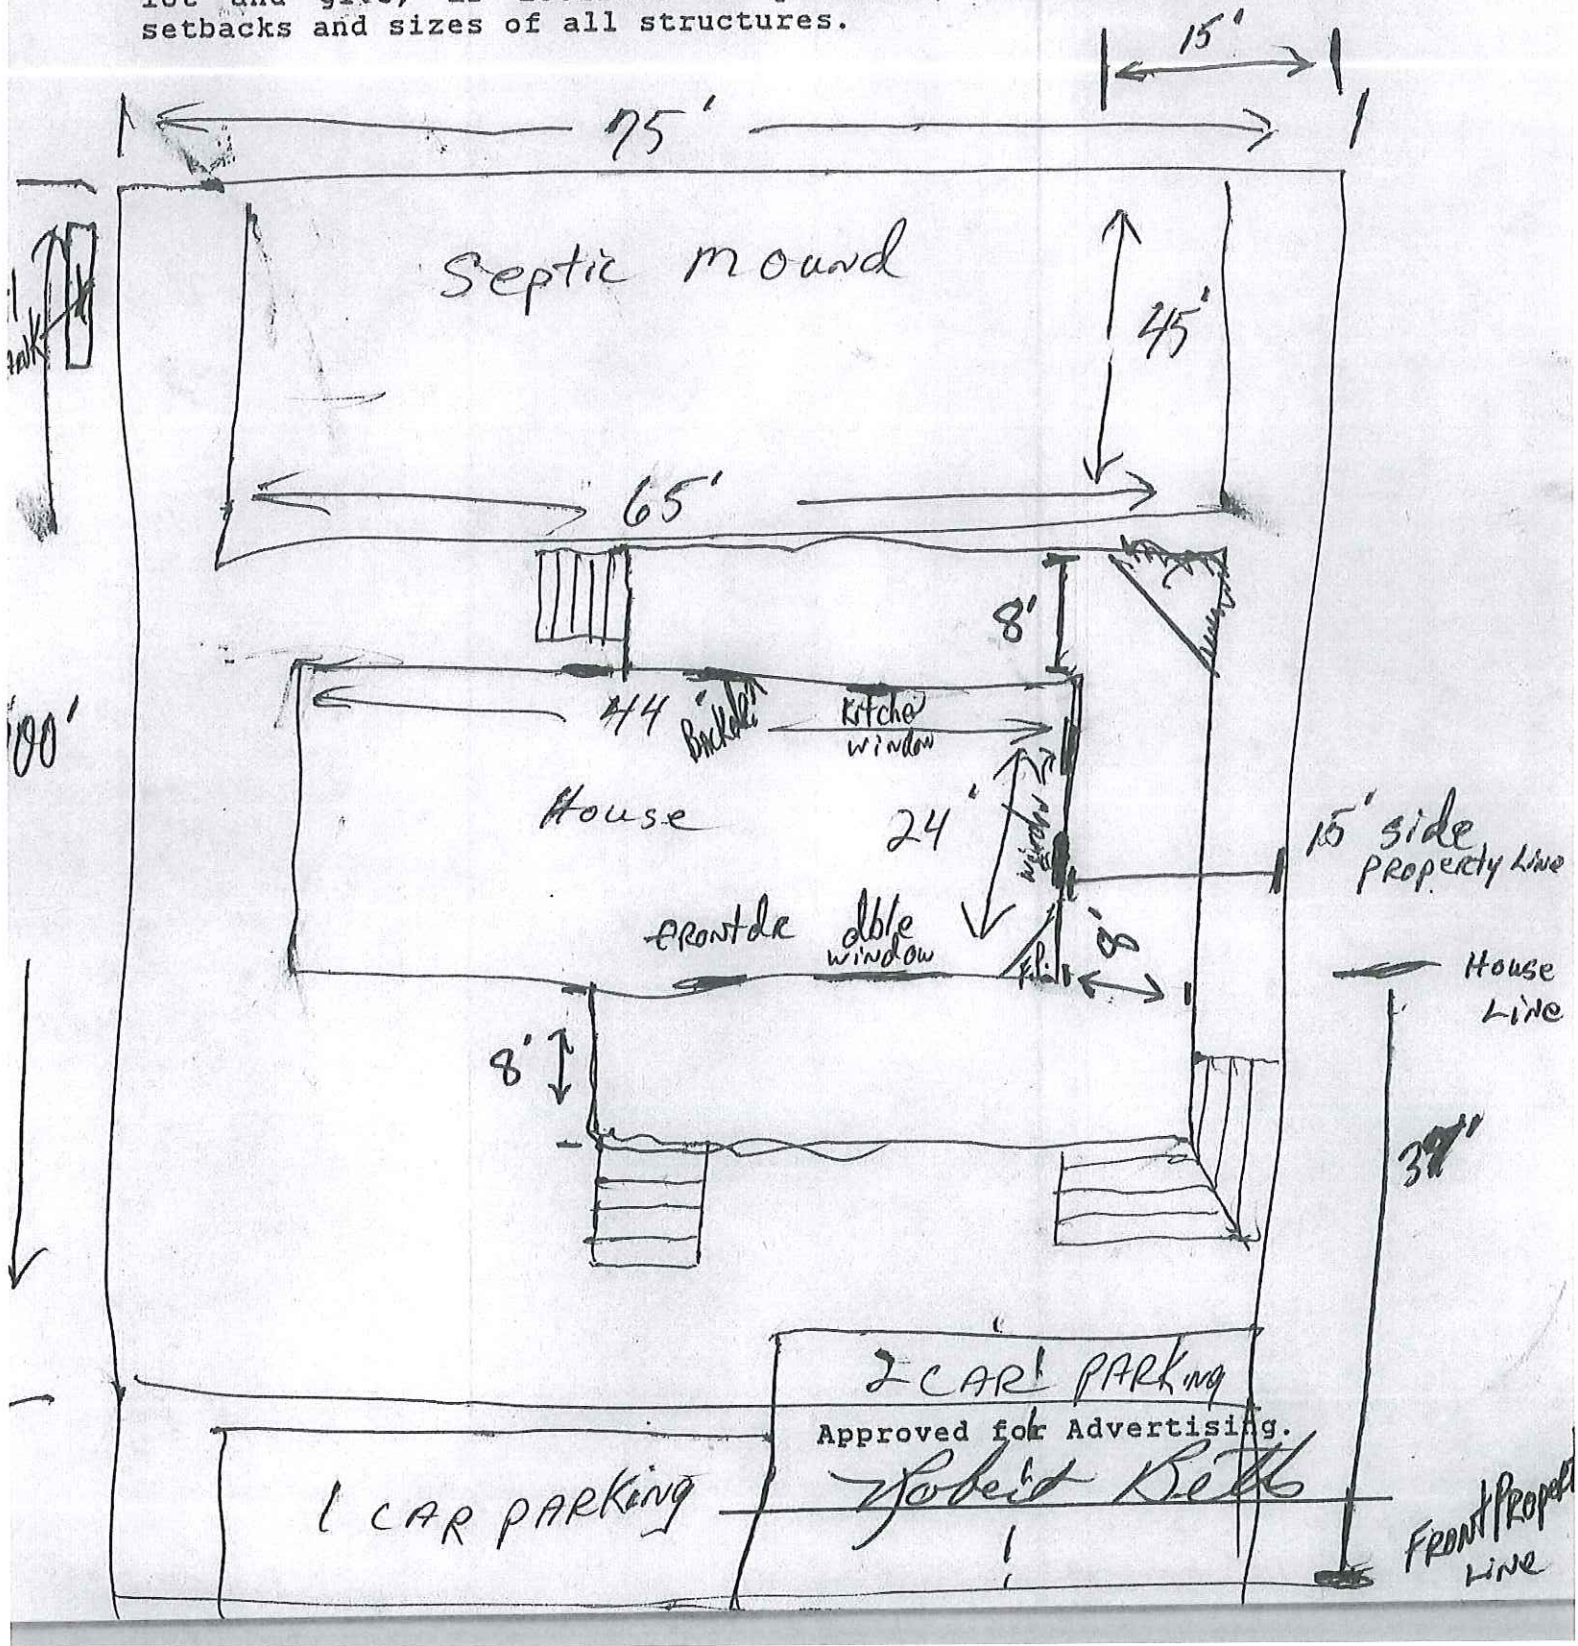 setbacks and sizes of all structures.
15'
75'
Septic Mound
45'
65'
8'
44'
Kitchen
window
House
24'
window
15' side
Property Line
FRONT dR
dble
window
8'
House
Line
8'
2 CAR PARKing
Approved for Advertising.
Robert Betts
1 CAR PARKing
Line